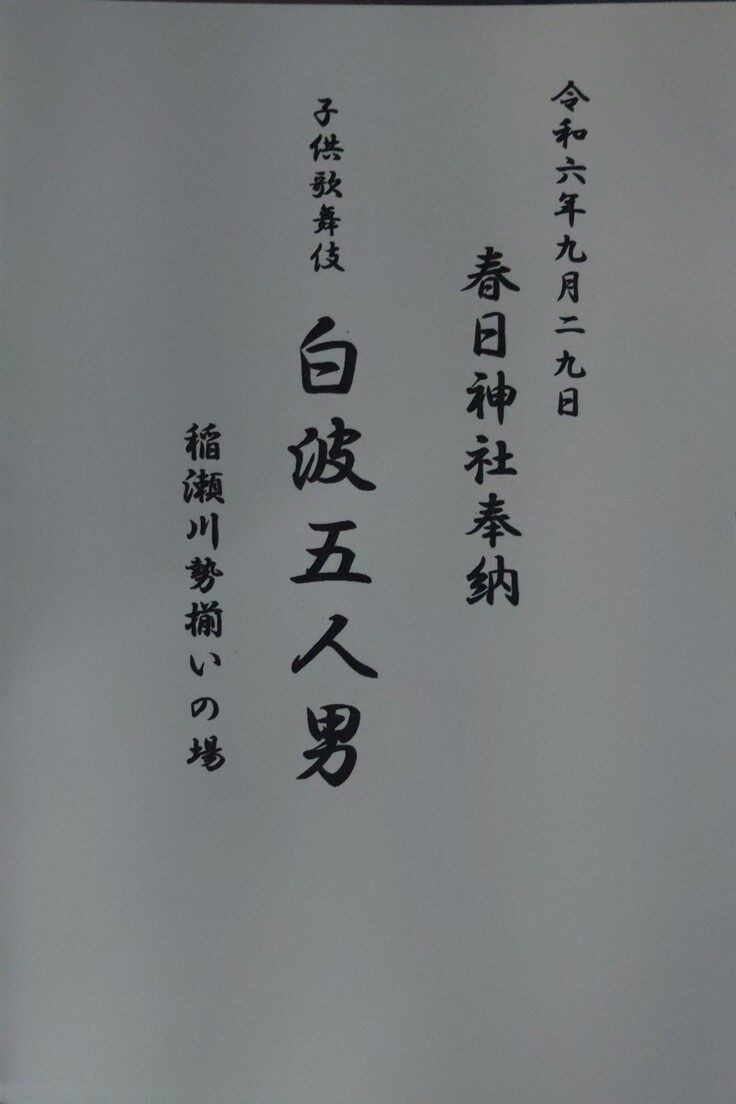 令和六年九月二九日
春日神社奉納
子供歌舞伎 白波五人男
稲瀬川勢揃いの場